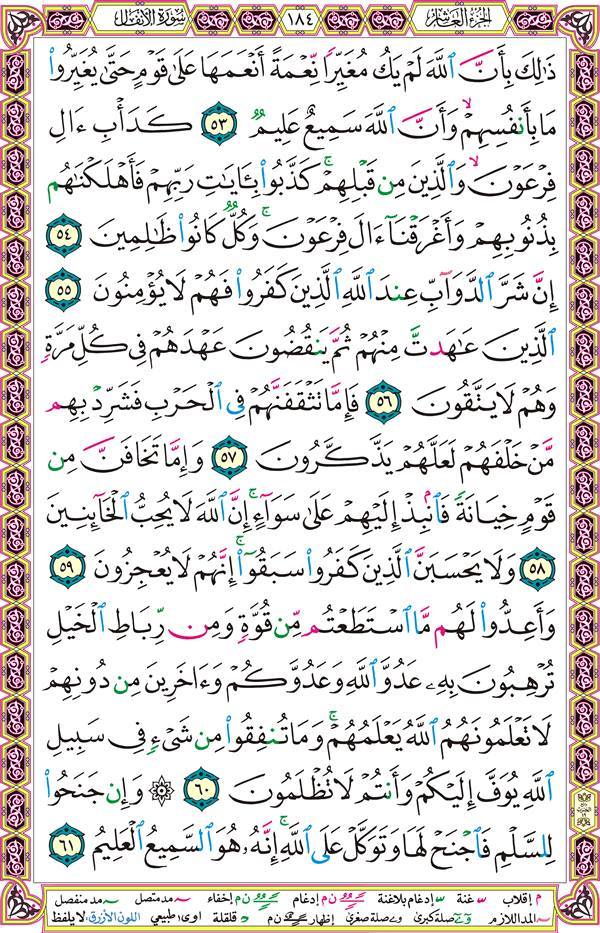 الجزء العاشر ١٨٤ سورة الأنفال
ذَٰلِكَ بِأَنَّ ٱللَّهَ لَمْ يَكُ مُغَيِّرًا نِّعْمَةً أَنْعَمَهَا عَلَىٰ قَوْمٍ حَتَّىٰ يُغَيِّرُوا۟
مَا بِأَنفُسِهِمْ ۙ وَأَنَّ ٱللَّهَ سَمِيعٌ عَلِيمٌ ٥٣ كَدَأْبِ ءَالِ
فِرْعَوْنَ ۙ وَٱلَّذِينَ مِن قَبْلِهِمْ ۚ كَذَّبُوا۟ بِـَٔايَـٰتِ رَبِّهِمْ فَأَهْلَكْنَـٰهُم
بِذُنُوبِهِمْ وَأَغْرَقْنَآ ءَالَ فِرْعَوْنَ ۚ وَكُلٌّ كَانُوا۟ ظَـٰلِمِينَ ٥٤
إِنَّ شَرَّ ٱلدَّوَآبِّ عِندَ ٱللَّهِ ٱلَّذِينَ كَفَرُوا۟ فَهُمْ لَا يُؤْمِنُونَ ٥٥
ٱلَّذِينَ عَـٰهَدتَّ مِنْهُمْ ثُمَّ يَنقُضُونَ عَهْدَهُمْ فِى كُلِّ مَرَّةٍ
وَهُمْ لَا يَتَّقُونَ ٥٦ فَإِمَّا تَثْقَفَنَّهُمْ فِى ٱلْحَرْبِ فَشَرِّدْ بِهِم
مَّنْ خَلْفَهُمْ لَعَلَّهُمْ يَذَّكَّرُونَ ٥٧ وَإِمَّا تَخَافَنَّ مِن
قَوْمٍ خِيَانَةً فَٱنۢبِذْ إِلَيْهِمْ عَلَىٰ سَوَآءٍ ۚ إِنَّ ٱللَّهَ لَا يُحِبُّ ٱلْخَآئِنِينَ
٥٨ وَلَا يَحْسَبَنَّ ٱلَّذِينَ كَفَرُوا۟ سَبَقُوٓا۟ ۚ إِنَّهُمْ لَا يُعْجِزُونَ ٥٩
وَأَعِدُّوا۟ لَهُم مَّا ٱسْتَطَعْتُم مِّن قُوَّةٍ وَمِن رِّبَاطِ ٱلْخَيْلِ
تُرْهِبُونَ بِهِۦ عَدُوَّ ٱللَّهِ وَعَدُوَّكُمْ وَءَاخَرِينَ مِن دُونِهِمْ
لَا تَعْلَمُونَهُمُ ٱللَّهُ يَعْلَمُهُمْ ۚ وَمَا تُنفِقُوا۟ مِن شَىْءٍ فِى سَبِيلِ
ٱللَّهِ يُوَفَّ إِلَيْكُمْ وَأَنتُمْ لَا تُظْلَمُونَ ٦٠ ۞ وَإِن جَنَحُوا۟
لِلسَّلْمِ فَٱجْنَحْ لَهَا وَتَوَكَّلْ عَلَى ٱللَّهِ ۚ إِنَّهُۥ هُوَ ٱلسَّمِيعُ ٱلْعَلِيمُ ٦١
م إقلاب غنة إدغام بلاغنة ن م إدغام ن م إخفاء مد متصل مد منفصل
المد اللازم صلة كبرى صلة صغرى إظهار ن م قلقلة اوى طبيعي اللون الأزرق لا يلفظ